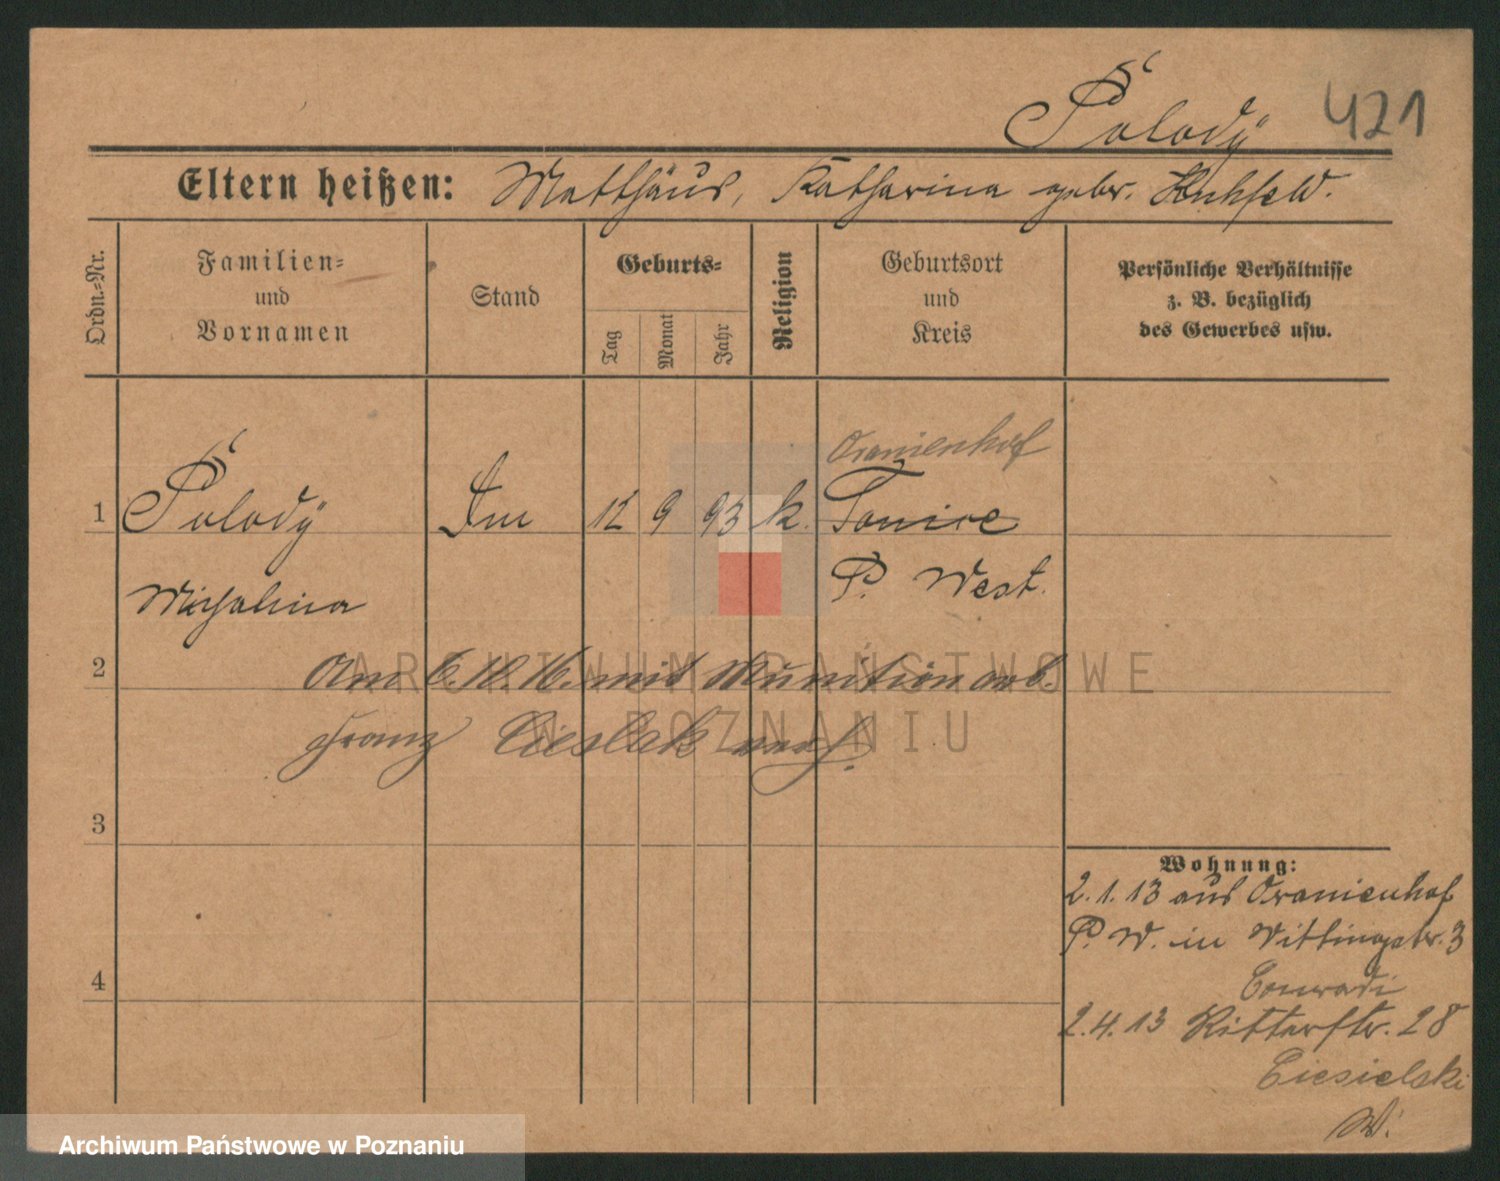 Polody
421
Eltern heißen: Matthäus, Katharina gebr.
Ordn.-Nr.
Familien-
und
Vornamen
Stand
Geburts-
Tag
Monat
Jahr
Religion
Geburtsort
und
Kreis
Persönliche Verhältnisse
z. B. bezüglich
des Gewerbes usw.
Oranienhof
1 Polody 12 9 93 k.
P. West.
Michalina
2 Am 6.10.16. mit Munition
Franz Cieslak
3
4
Wohnung:
2.1.13 aus Oranienhof
P. W. in 3
Conradi
2.4.13 Ritterstr. 28
Ciesielski
W.
ARCHIWUM PAŃSTWOWE
W POZNANIU
Archiwum Państwowe w Poznaniu